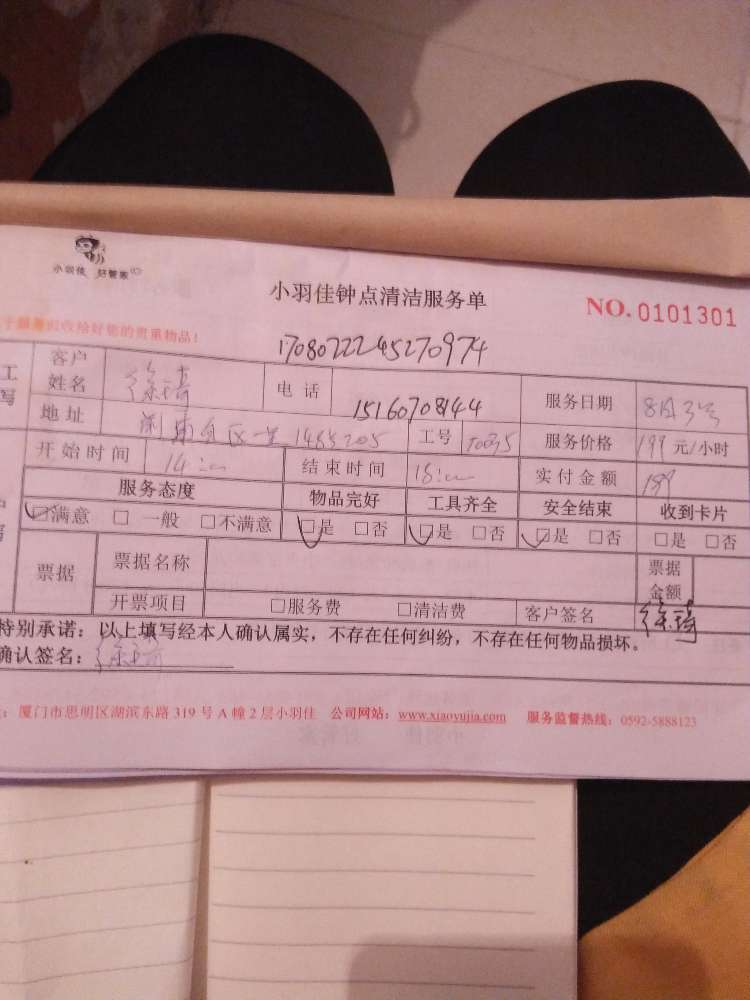 小羽佳 好管家
小羽佳钟点清洁服务单
NO.0101301
收给好您的贵重物品!
1708022245270974
客户姓名 徐琦 电话 15160708144 服务日期 8月3号
地址 工号 服务价格 199 元/小时
开始时间 14:00 结束时间 18:00 实付金额 199
服务态度 物品完好 工具齐全 安全结束 收到卡片
☑满意 □一般 □不满意 ☑是 □否 ☑是 □否 ☑是 □否 □是 □否
票据 票据名称 票据金额
开票项目 □服务费 □清洁费 客户签名 徐琦
特别承诺：以上填写经本人确认属实，不存在任何纠纷，不存在任何物品损坏。
确认签名：徐琦
厦门市思明区湖滨东路 319 号 A 幢 2 层小羽佳 公司网站：www.xiaoyujia.com 服务监督热线：0592-5888123